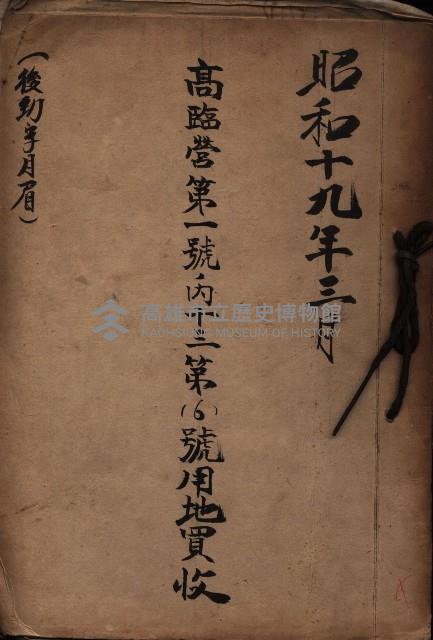 昭和十九年三月
高臨營第一號丙十二第(6)號用地買收
(後勁半月眉)
高雄市立歷史博物館
KAOHSIUNG MUSEUM OF HISTORY